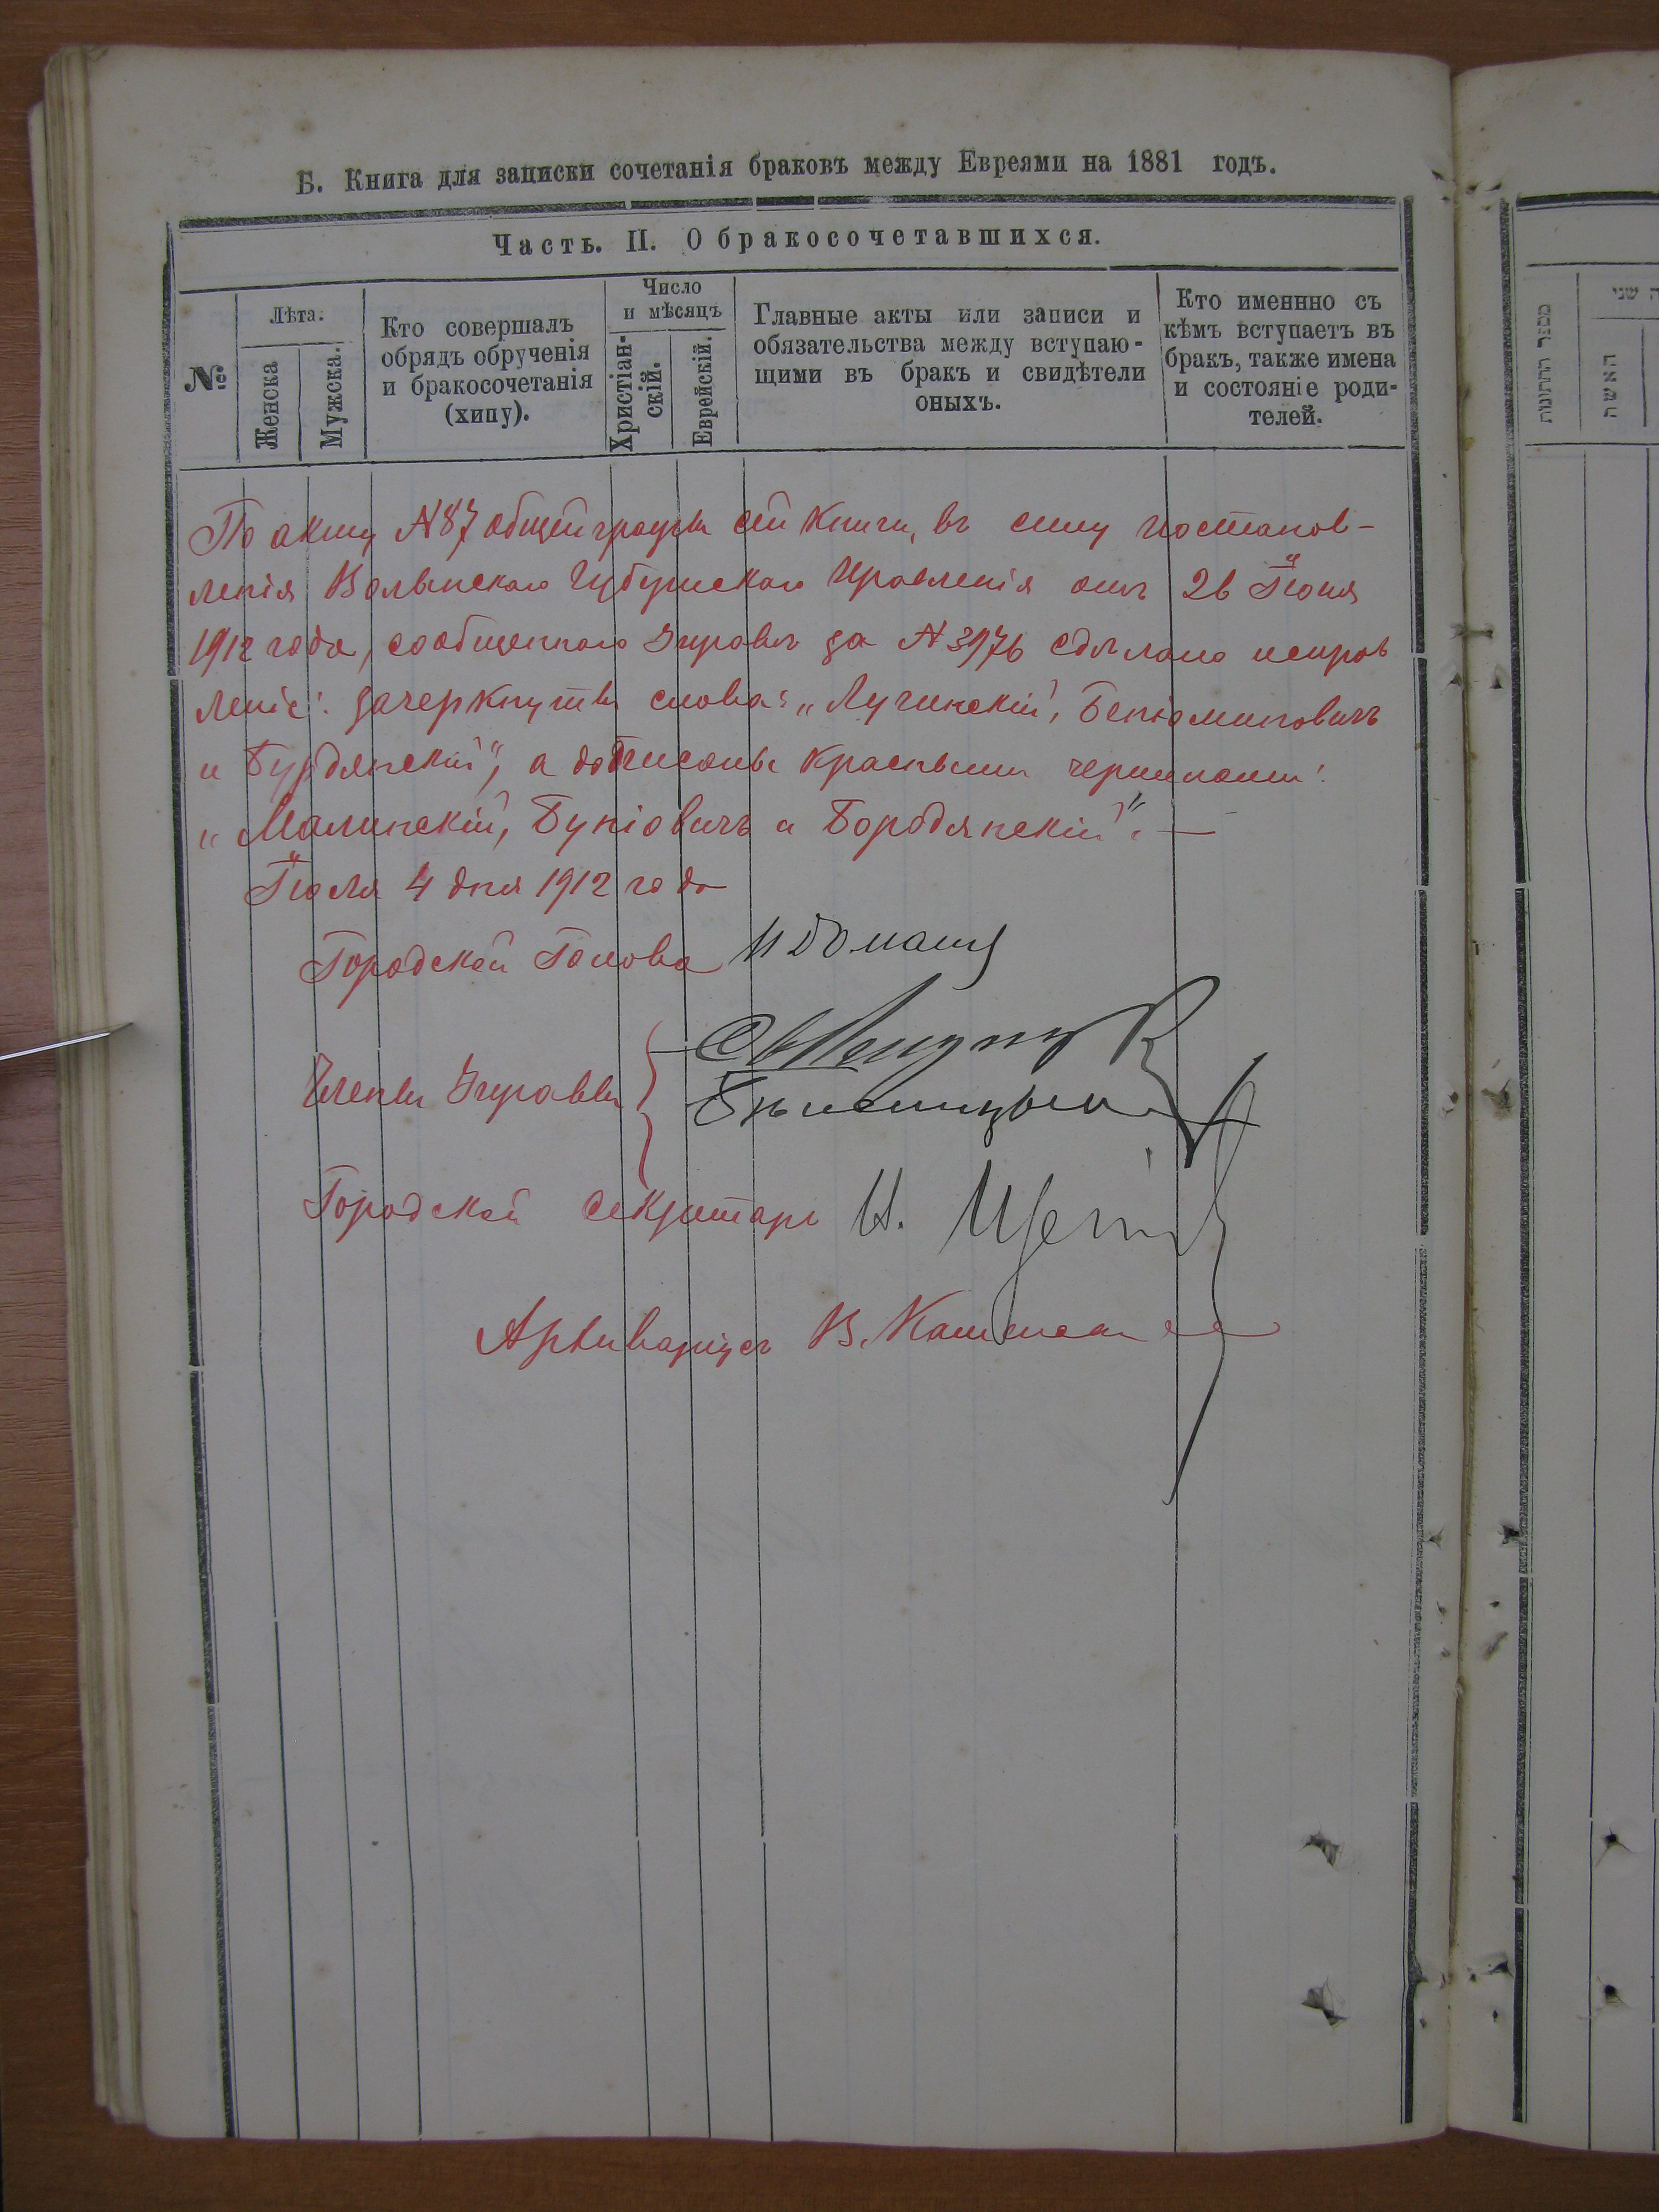 Б. Книга для записки сочетанія браковъ между Евреями на 1881 годъ.
Часть. II. О бракосочетавшихся.
№
Лѣта.
Женска
Мужска.
Кто совершалъ
обрядъ обрученія
и бракосочетанія
(хипу).
Число
и мѣсяцъ
Христіан-
скій.
Еврейскій.
Главные акты или записи и
обязательства между вступаю-
щими въ бракъ и свидѣтели
оныхъ.
Кто именнно съ
кѣмъ вступаетъ въ
бракъ, также имена
и состояніе роди-
телей.
По акту №87 общей графы сей книги, въ силу постанов-
ленія Волынскаго Губернскаго Правленія отъ 26 Іюня
1912 года, сообщеннаго Управѣ за № 3976 сдѣлано исправ
леніе: зачеркнуты слова: „Лучинскій, Беніоминовичъ
и Бурдянскій“, а надписаны красными чернилами:
„Малинскій, Буніовичъ и Бородянскій“. —
Іюля 4 дня 1912 года
Городской Голова
Члены Управы
Городской Секретарь Н.
Архиваріусъ В.
מספר החתונות
האשה